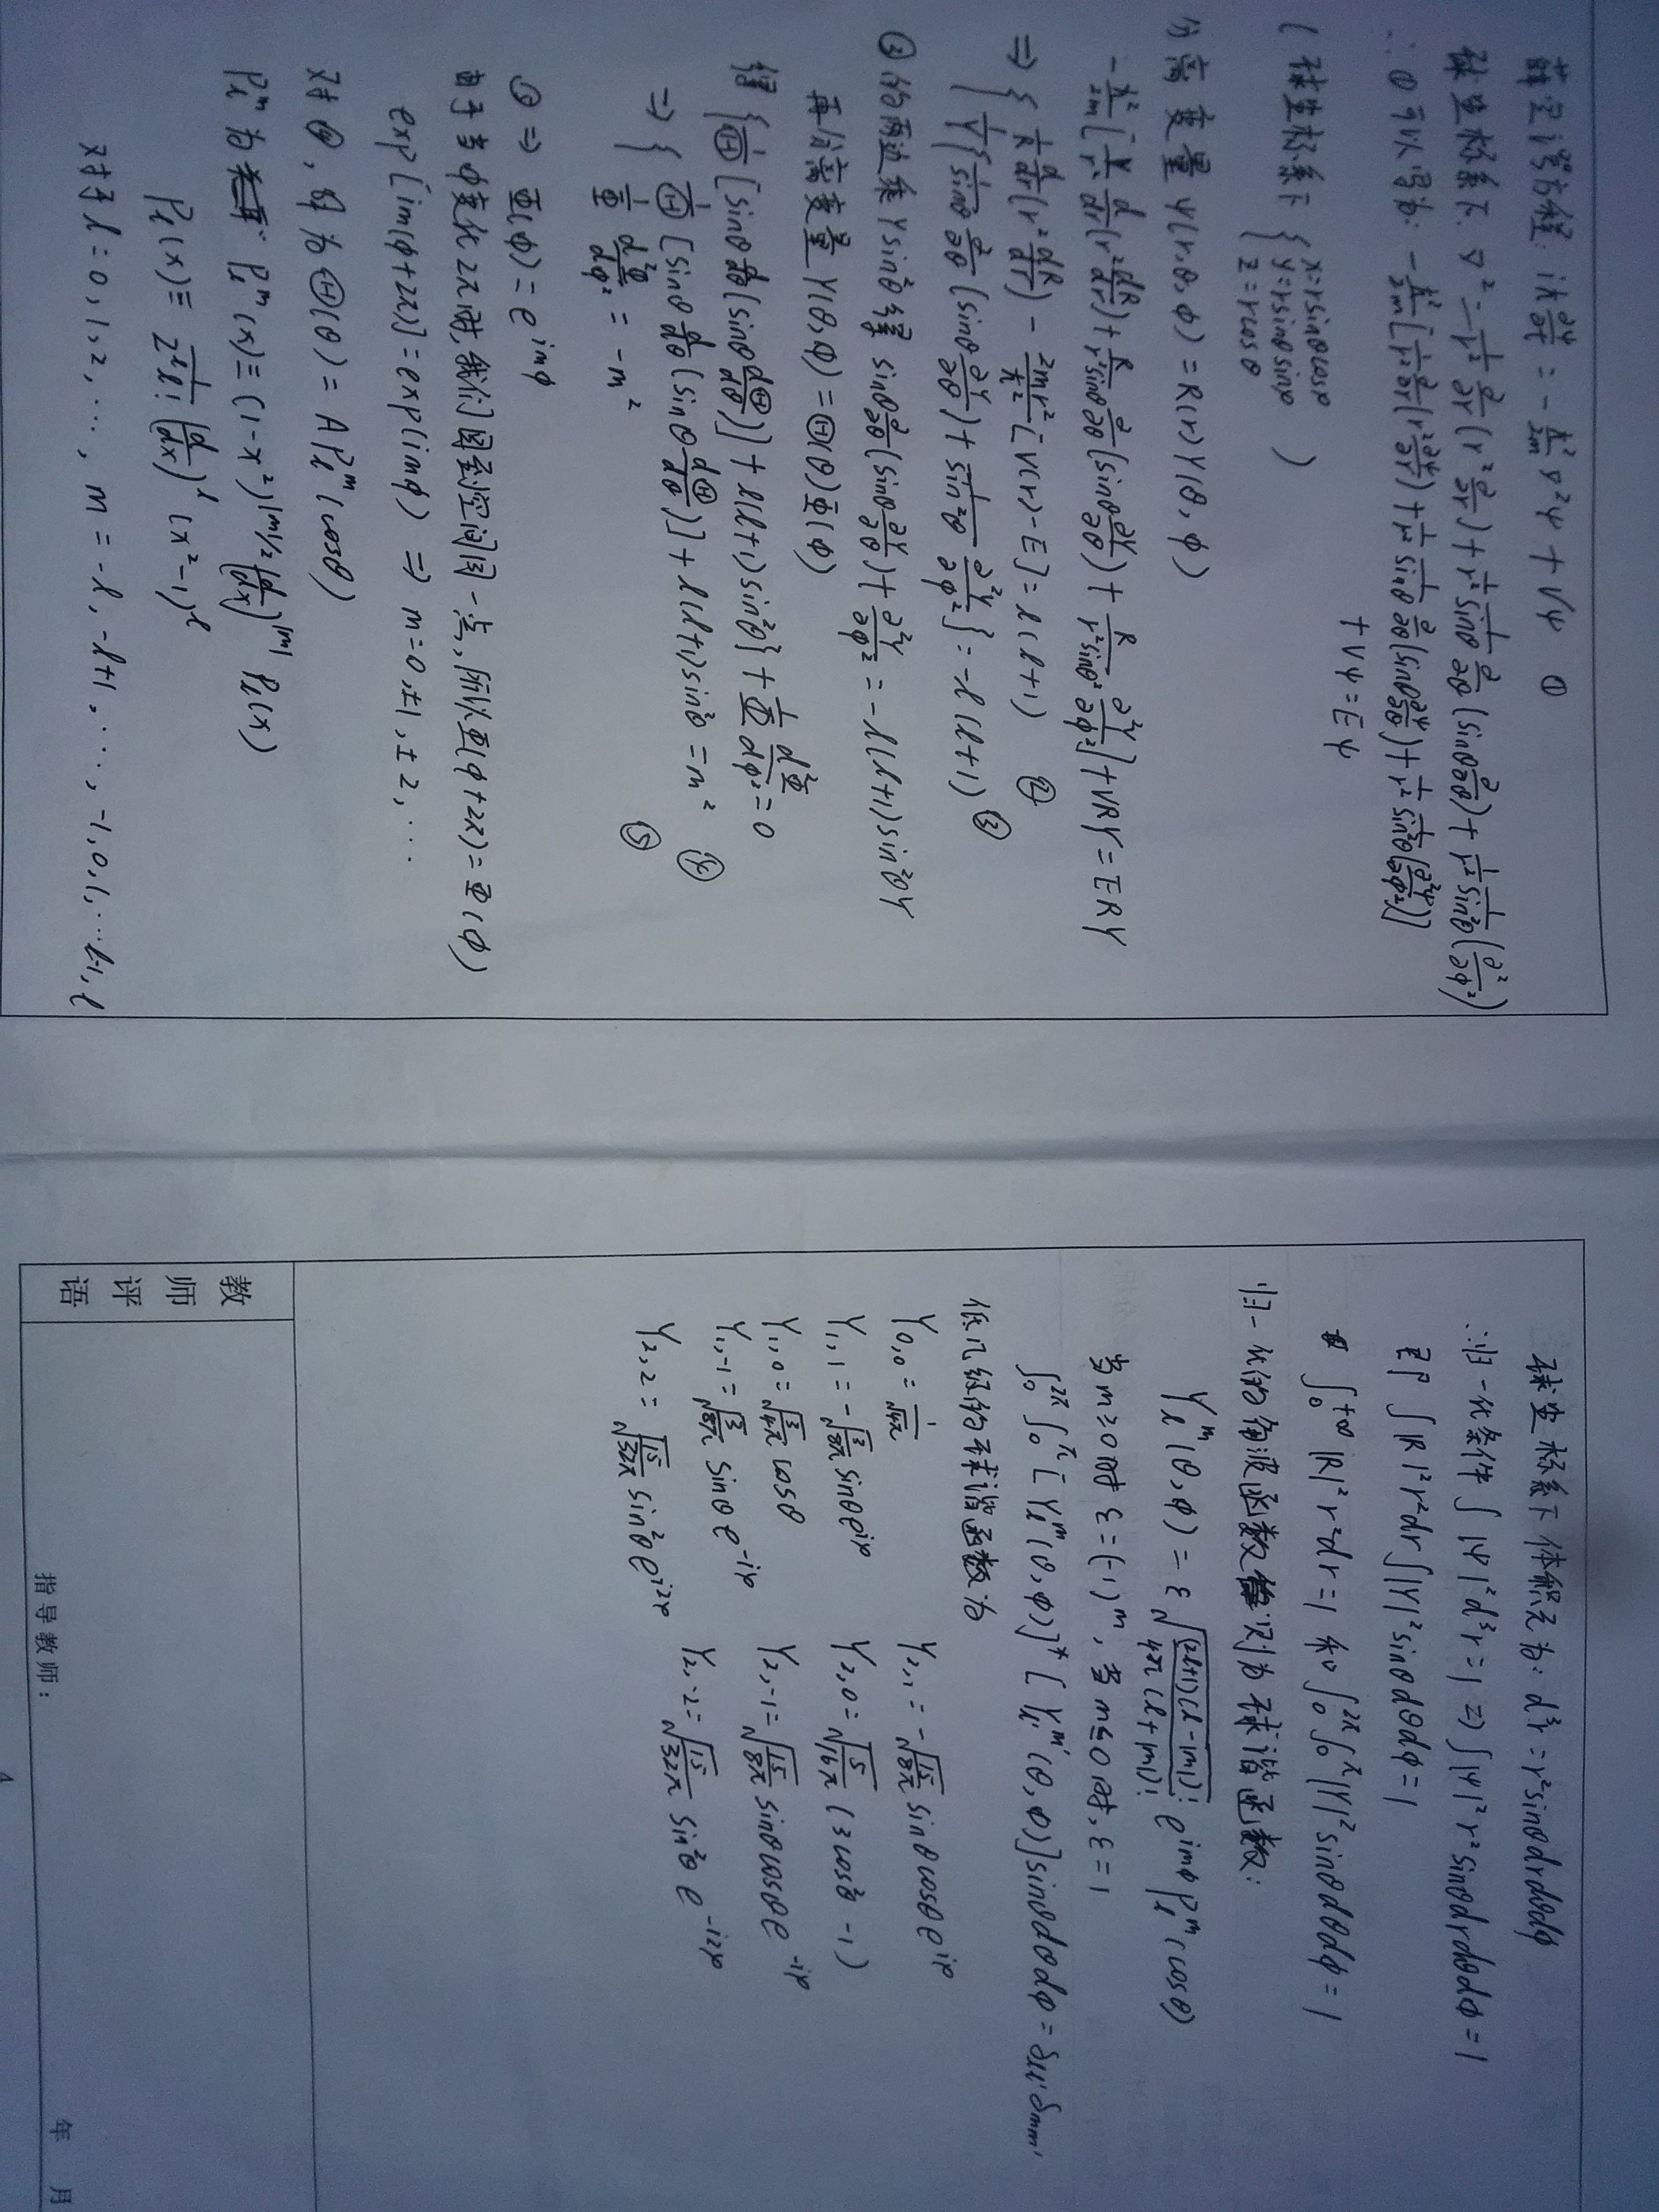 薛定谔方程: iħ ∂ψ/∂t = -ħ²/2m ∇²ψ + Vψ ①
球坐标系下. ∇² = 1/r² ∂/∂r (r² ∂/∂r) + 1/r² 1/sinθ ∂/∂θ (sinθ ∂/∂θ) + 1/r² 1/sin²θ (∂²/∂φ²)
∴ ①可以写为: -ħ²/2m [1/r² ∂/∂r (r² ∂ψ/∂r) + 1/r² 1/sinθ ∂/∂θ (sinθ ∂ψ/∂θ) + 1/r² 1/sin²θ (∂²ψ/∂φ²)]
+ Vψ = Eψ
(球坐标系下 { x=rsinθcosφ
y=rsinθsinφ )
z=rcosθ
分离变量 ψ(r,θ,φ) = R(r)Y(θ,φ)
-ħ²/2m [Y/r² d/dr (r² dR/dr) + R/r²sinθ ∂/∂θ (sinθ ∂Y/∂θ) + R/r²sinθ² ∂²Y/∂φ²] + VRY = ERY
⇒ { 1/R d/dr (r² dR/dr) - 2mr²/ħ² [V(r)-E] = l(l+1) ②
1/Y {1/sinθ ∂/∂θ (sinθ ∂Y/∂θ) + 1/sin²θ ∂²Y/∂φ²} = -l(l+1) ③
③的两边乘Ysin²θ得 sinθ ∂/∂θ (sinθ ∂Y/∂θ) + ∂²Y/∂φ² = -l(l+1)sin²θY
再分离变量 Y(θ,φ) = Θ(θ)Φ(φ)
得 {1/Θ [sinθ d/dθ (sinθ dΘ/dθ)] + l(l+1)sin²θ} + 1/Φ d²Φ/dφ² = 0
⇒ { 1/Θ [sinθ d/dθ (sinθ dΘ/dθ)] + l(l+1)sin²θ = m² ④
1/Φ d²Φ/dφ² = -m² ⑤
⑤ ⇒ Φ(φ) = e^{imφ}
由于当φ变化2π时,我们回到空间同一点,所以Φ(φ+2π)=Φ(φ)
exp[im(φ+2π)] = exp(imφ) ⇒ m=0,±1,±2,···
对④,解为 Θ(θ) = AP_l^m(cosθ)
P_l^m 为 P_l^m(x) ≡ (1-x²)^{|m|/2} (d/dx)^{|m|} P_l(x)
P_l(x) ≡ 1/2^l l! (d/dx)^l (x²-1)^l
对于l=0,1,2,···, m=-l,-l+1,···,-1,0,1,···l-1,l
球坐标系下体积元为: d³r = r²sinθdrdθdφ
∴归一化条件 ∫|ψ|²d³r=1 ⇒ ∫|ψ|²r²sinθdrdθdφ=1
即 ∫|R|²r²dr∫|Y|²sinθdθdφ=1
∫₀^{+∞}|R|²r²dr=1 和 ∫₀^{2π}∫₀^{π}|Y|²sinθdθdφ=1
归一化的角波函数则为球谐函数:
Y_l^m(θ,φ) = ε √((2l+1)(l-|m|)!/4π(l+|m|)!) e^{imφ} P_l^m(cosθ)
当m≥0时 ε=(-1)^m, 当m≤0时, ε=1
∫₀^{2π}∫₀^{π}[Y_l^m(θ,φ)]*[Y_{l'}^{m'}(θ,φ)]sinθdθdφ = δ_{ll'}δ_{mm'}
低几级的球谐函数为
Y₀,₀ = 1/√4π
Y₂,₁ = -√(15/8π) sinθcosθe^{iφ}
Y₁,₁ = -√(3/8π) sinθe^{iφ}
Y₂,₀ = √(5/16π) (3cos²θ-1)
Y₁,₀ = √(3/4π) cosθ
Y₂,₋₁ = √(15/8π) sinθcosθe^{-iφ}
Y₁,₋₁ = √(3/8π) sinθe^{-iφ}
Y₂,₋₂ = √(15/32π) sin²θ e^{-i2φ}
Y₂,₂ = √(15/32π) sin²θe^{i2φ}
教师评语
指导教师: 年 月
4